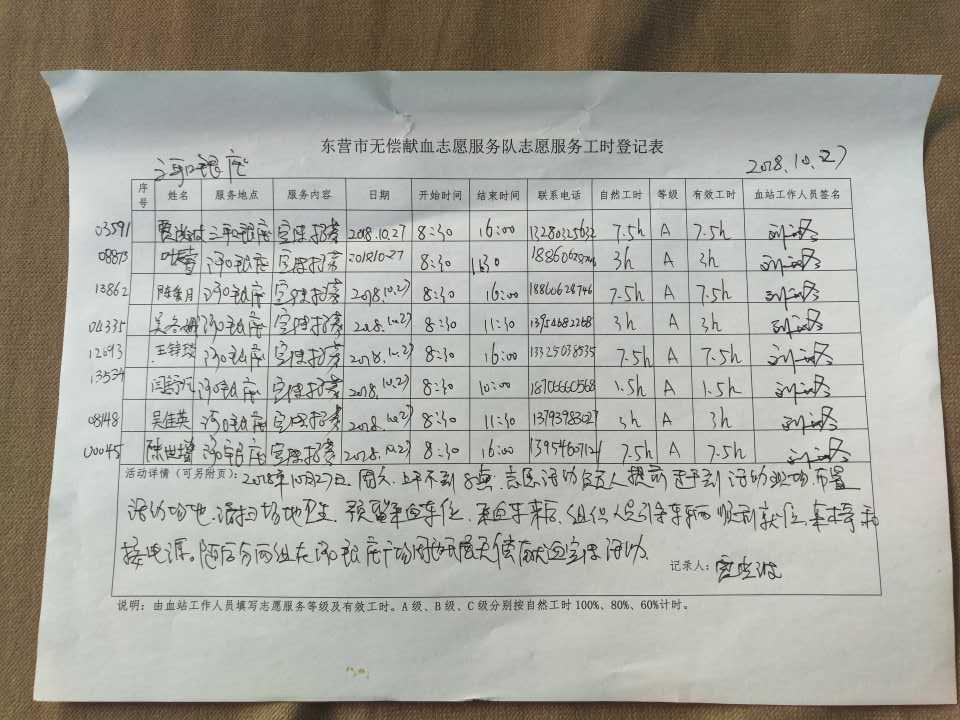 东营市无偿献血志愿服务队志愿服务工时登记表
银座 2018.10.27
序号 姓名 服务地点 服务内容 日期 开始时间 结束时间 联系电话 自然工时 等级 有效工时 血站工作人员签名
03591 银座 宣传招募 2018.10.27 8:30 16:00 13280325632 7.5h A 7.5h
08873 银座 宣传招募 2018.10.27 8:30 11:30 3h A 3h
13862 陈香月 银座 宣传招募 2018.10.27 8:30 16:00 18860628746 7.5h A 7.5h
04335 吴冬娜 银座 宣传招募 2018.10.27 8:30 11:30 13954682268 3h A 3h
12693 银座 宣传招募 2018.10.27 8:30 16:00 13325038535 7.5h A 7.5h
13534 银座 宣传招募 2018.10.27 8:30 10:00 18706660568 1.5h A 1.5h
08148 吴佳英 银座 宣传招募 2018.10.27 8:30 11:30 13793978302 3h A 3h
00045 陈世增 银座 宣传招募 2018.10.27 8:30 16:00 13954607121 7.5h A 7.5h
活动详情（可另附页）：2018年10月27日 周六，上午不到8点，志愿活动负责人提前赶到活动现场，布置
活动场地，清扫场地卫生，预留采血车位，采血车来后，组织人员引导车辆顺利就位，
接电源。随后分两组在银座广场周边开展无偿献血宣传活动。
记录人：
说明：由血站工作人员填写志愿服务等级及有效工时。A级、B级、C级分别按自然工时100%、80%、60%计时。